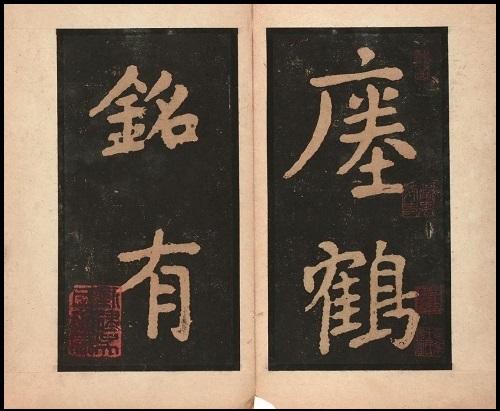 瘞鶴
銘有